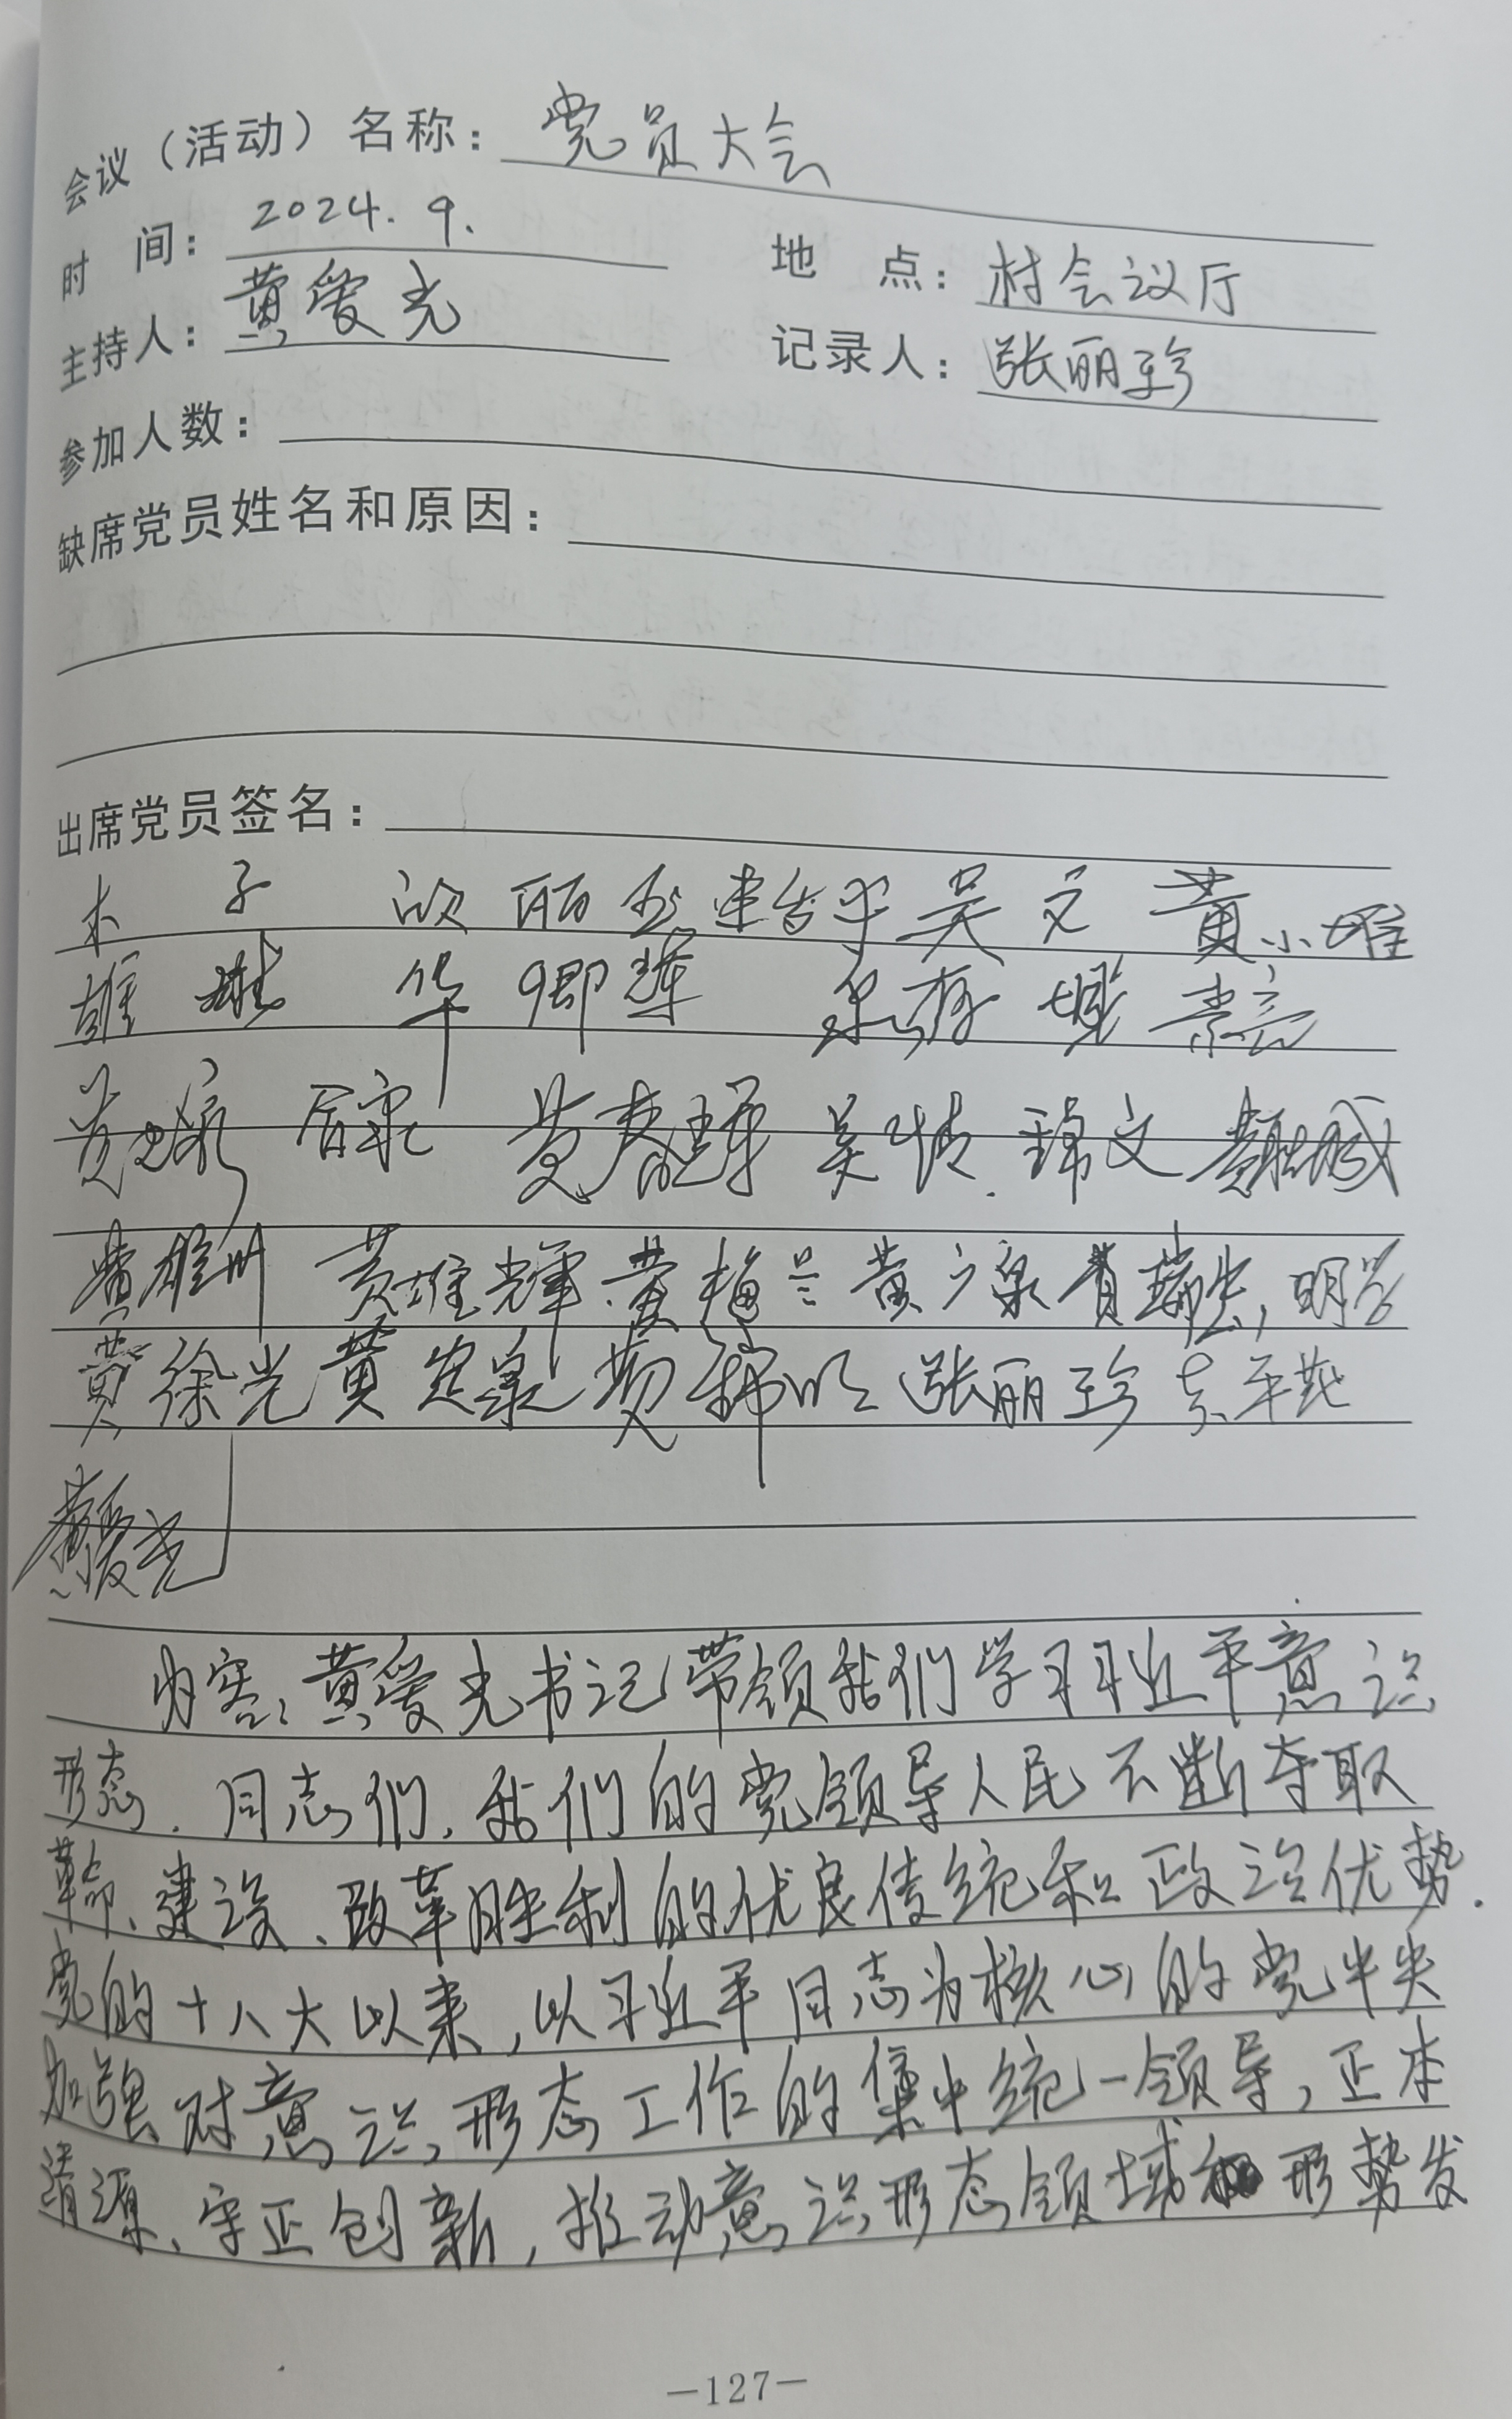 会议（活动）名称：党员大会
时 间：2024.9. 地 点：村会议厅
主持人：黄爱光 记录人：张丽珍
参加人数：
缺席党员姓名和原因：
出席党员签名：
吴文 黄小雄
雄 华 卿
黄春 吴 锦文
黄雄州 黄雄辉 黄梅兰 黄 泉 明
黄徐光 黄 泉 张丽珍
黄爱光
内容：黄爱光书记带领我们学习习近平意识
形态．同志们，我们的党领导人民不断夺取
革命、建设、改革胜利的优良传统和政治优势．
党的十八大以来，以习近平同志为核心的党中央
加强对意识形态工作的集中统一领导，正本
清源、守正创新，推动意识形态领域形势发
—127—